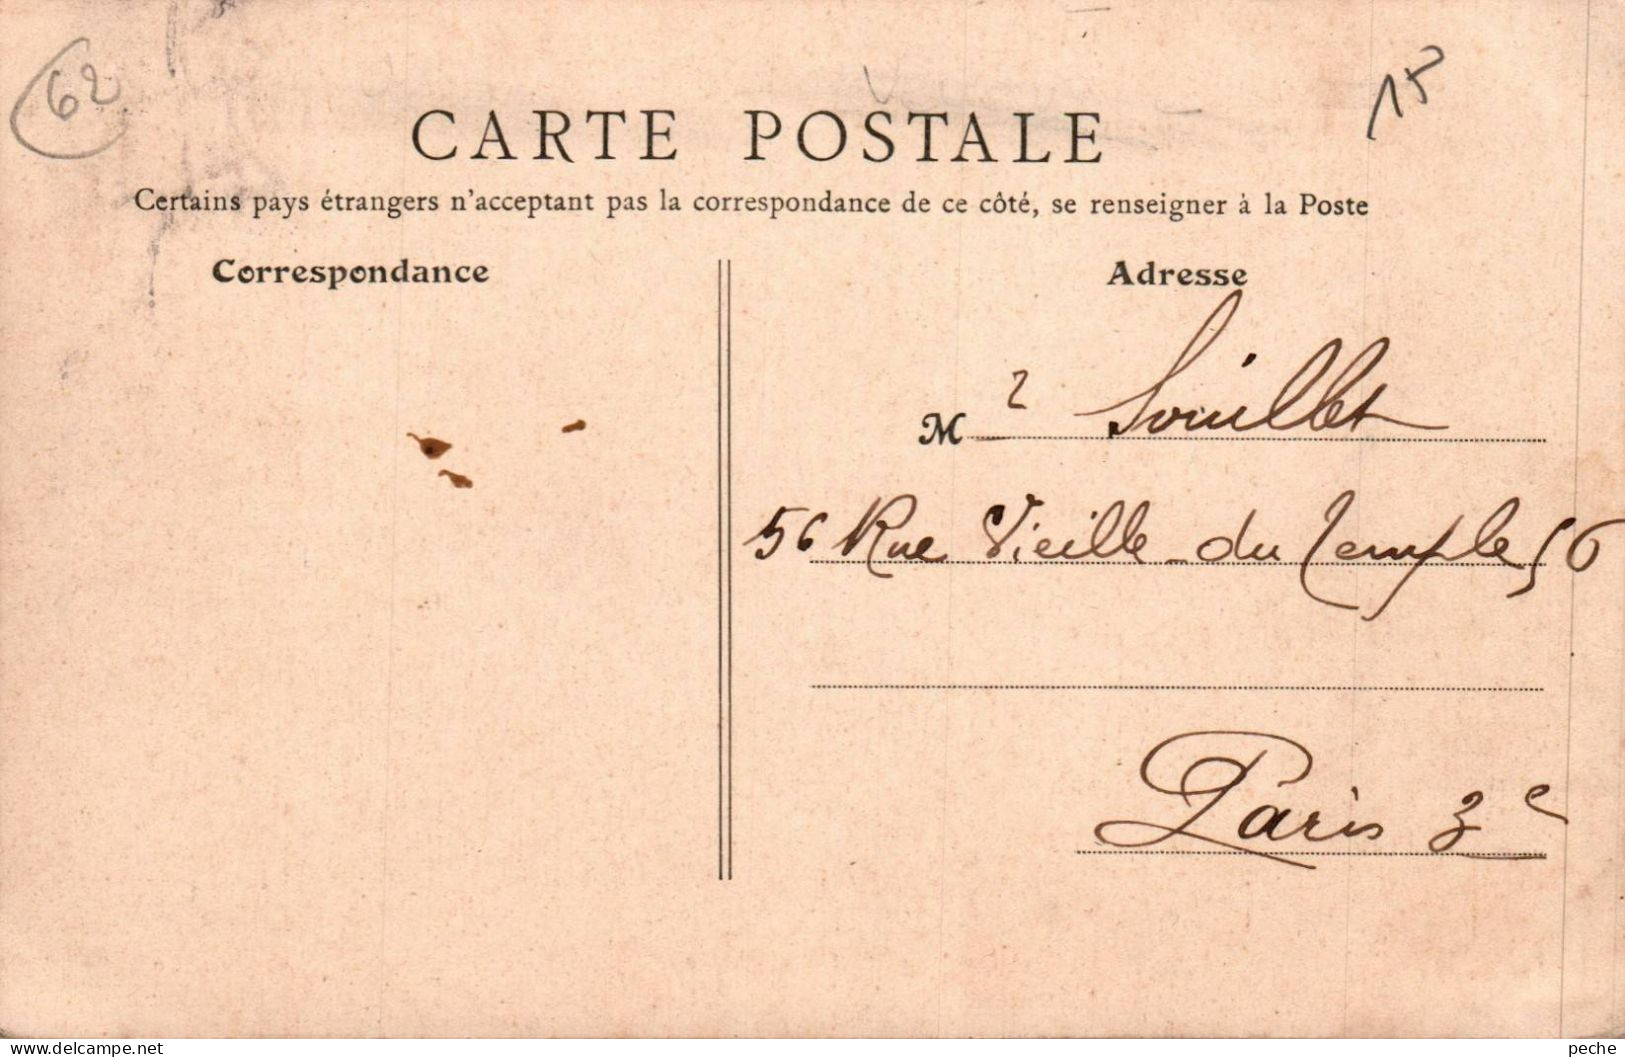 62
15
CARTE POSTALE
Certains pays étrangers n'acceptant pas la correspondance de ce côté, se renseigner à la Poste
Correspondance
Adresse
Mr Souillet
56 Rue Vieille-du Temple 56
Paris 3e
www.delcampe.net
peche